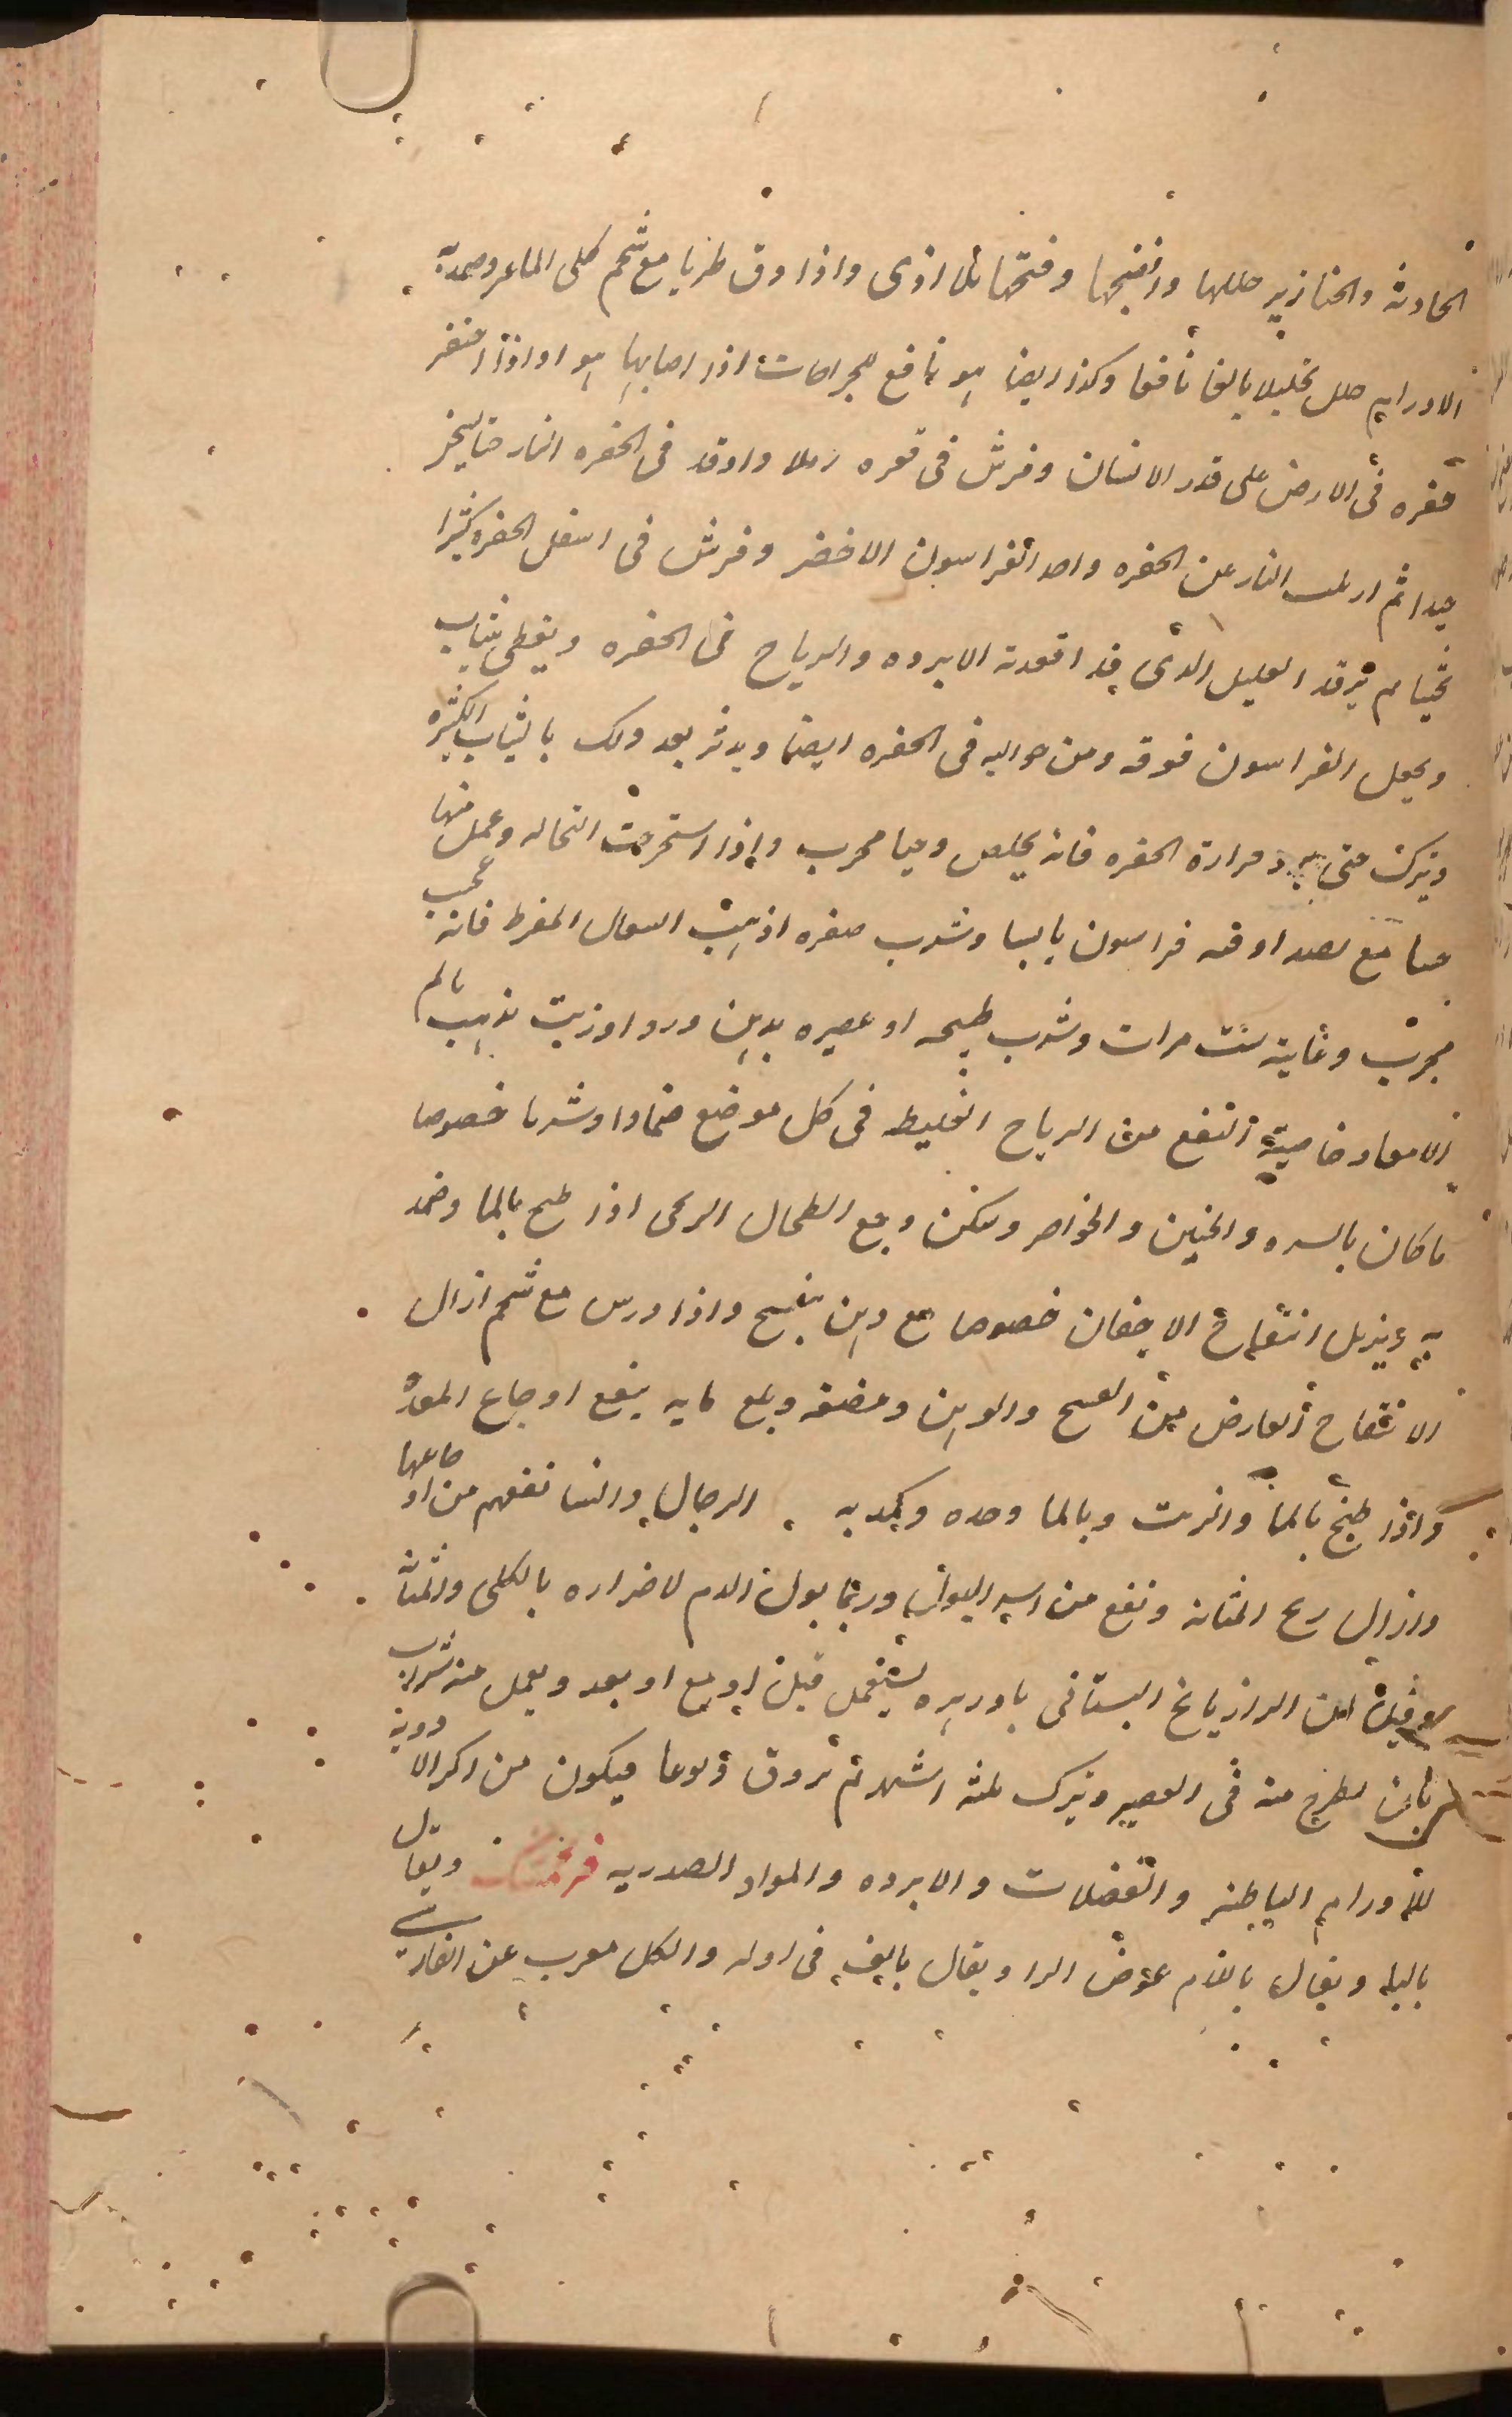 الحادثه والخنازير حللها وانضجها وفتحها بلا اذى واذا دق طريا مع شحم كلى الماعز وضمد به
الاورام حلل تحليلا بالغا نافعا وكذا ايضا هو نافع للجراحات اذا اصابها هوا واذا احتفر
حفره فى الارض على قدر الانسان وفرش فى قعره رملا واوقد فى الحفره النار حتا يسخن
جيدا ثم ازيلت النار عن الحفره واخذ الفراسون الاخضر وفرش فى اسفل الحفره كثيرا
ثم يرقد العليل الذى قد اقعدته الابرده والرياح فى الحفره ويغطى بثياب
ويجعل الفراسون فوقه ومن حواليه فى الحفره ايضا ويدثر بعد ذلك بالثياب الكثيره
ويترك حتى يبرد حرارة الحفره فانه يخلص وحيا مجرب واذا استخرجت النخاله وعمل منها
حسا مع نصف اوقيه فراسون يابسا وشرب صفره اذهبت السعال المفرط فانه عجيب
مجرب وغايته ست مرات وشرب طبيخه او عصيره بدهن ورد او زيت يذهب بالم
الامعاء وخاصيته النفع من الرياح الغليظه فى كل موضع ضمادا وشربا خصوصا
ما كان بالسره والجنبين والخواصر ويسكن وجع الطحال الريحى اذا طبخ بالما وضمد
به ويزيل انتفاخ الاجفان خصوصا مع دهن بنفسج واذا درس مع شحم ازال
الانتفاخ العارض من الفسخ والوهن ومضغه وبلع مايه ينفع اوجاع المعده
واذا طبخ بالما والزيت وبالما وحده وكمد به الرجال والنسا نفعهم من اوجاعها
وازال ريح المثانه ونفع من اسر البول وربما بول الدم لاضراره بالكلى والمثانه
ابن الرازيانج البستانى يستعمل قبله او مع او بعد ويعمل منه شراب
بان يطرح منه فى العصير ويترك ثلثه اشهر ثم يروق ويوعا فيكون من اكبر الادويه
للاورام الباطنه والفضلات والابرده والمواد الصدريه فرنجمشك ويقال
بالبا ويقال باللام عوض الرا ويقال بالف فى اوله والكل معرب عن الفارسى